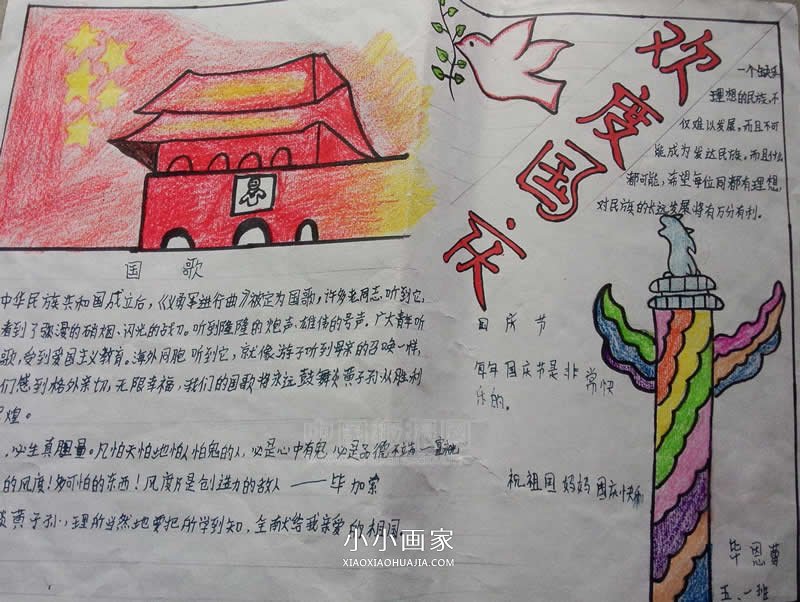 欢度国庆
一个缺乏
理想的民族,不
仅难以发展,而且不可
能成为发达民族,而且什么
都可能,希望每位同都有理想,
对民族的长远发展将有万分有利。
国歌
中华民族共和国成立后,《义勇军进行曲》被定为国歌,许多老同志,听到它,
看到了弥漫的硝烟、闪光的战刀。听到隆隆的炮声、雄伟的号声。广大青年听
歌,受到爱国主义教育。海外同胞听到它,就像游子听到母亲的召唤一样,
们感到格外亲切,无限幸福,我们的国歌将永远鼓舞炎黄子孙从胜利
煌。
,必生真胆量。凡怕天怕地怕人怕鬼的人,必是心中有鬼,必是品德不端
的风度!多可怕的东西!风度乃是创造力的敌人——毕加索
炎黄子孙,理所当然地要把所学到知,全献给我亲爱的祖国。
国庆节
每年国庆节是非常快
乐的。
祝祖国妈妈国庆快乐
毕恩蕾
五、一班
小小画家
XIAOXIAOHUAJIA.COM